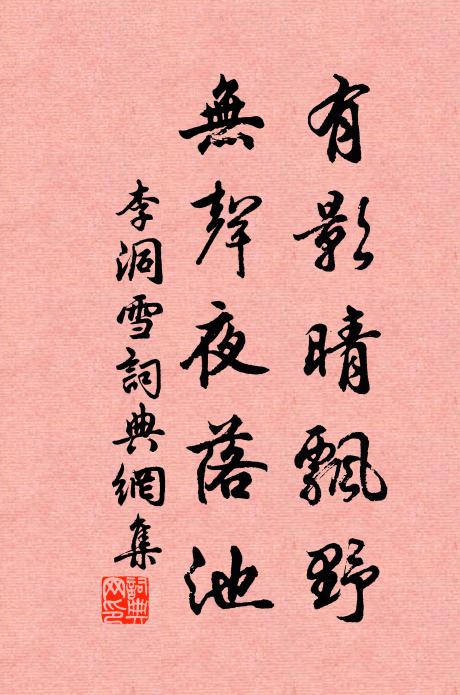 有影晴飄野
無聲夜落池
李洞雪詞典網集
詞典網印